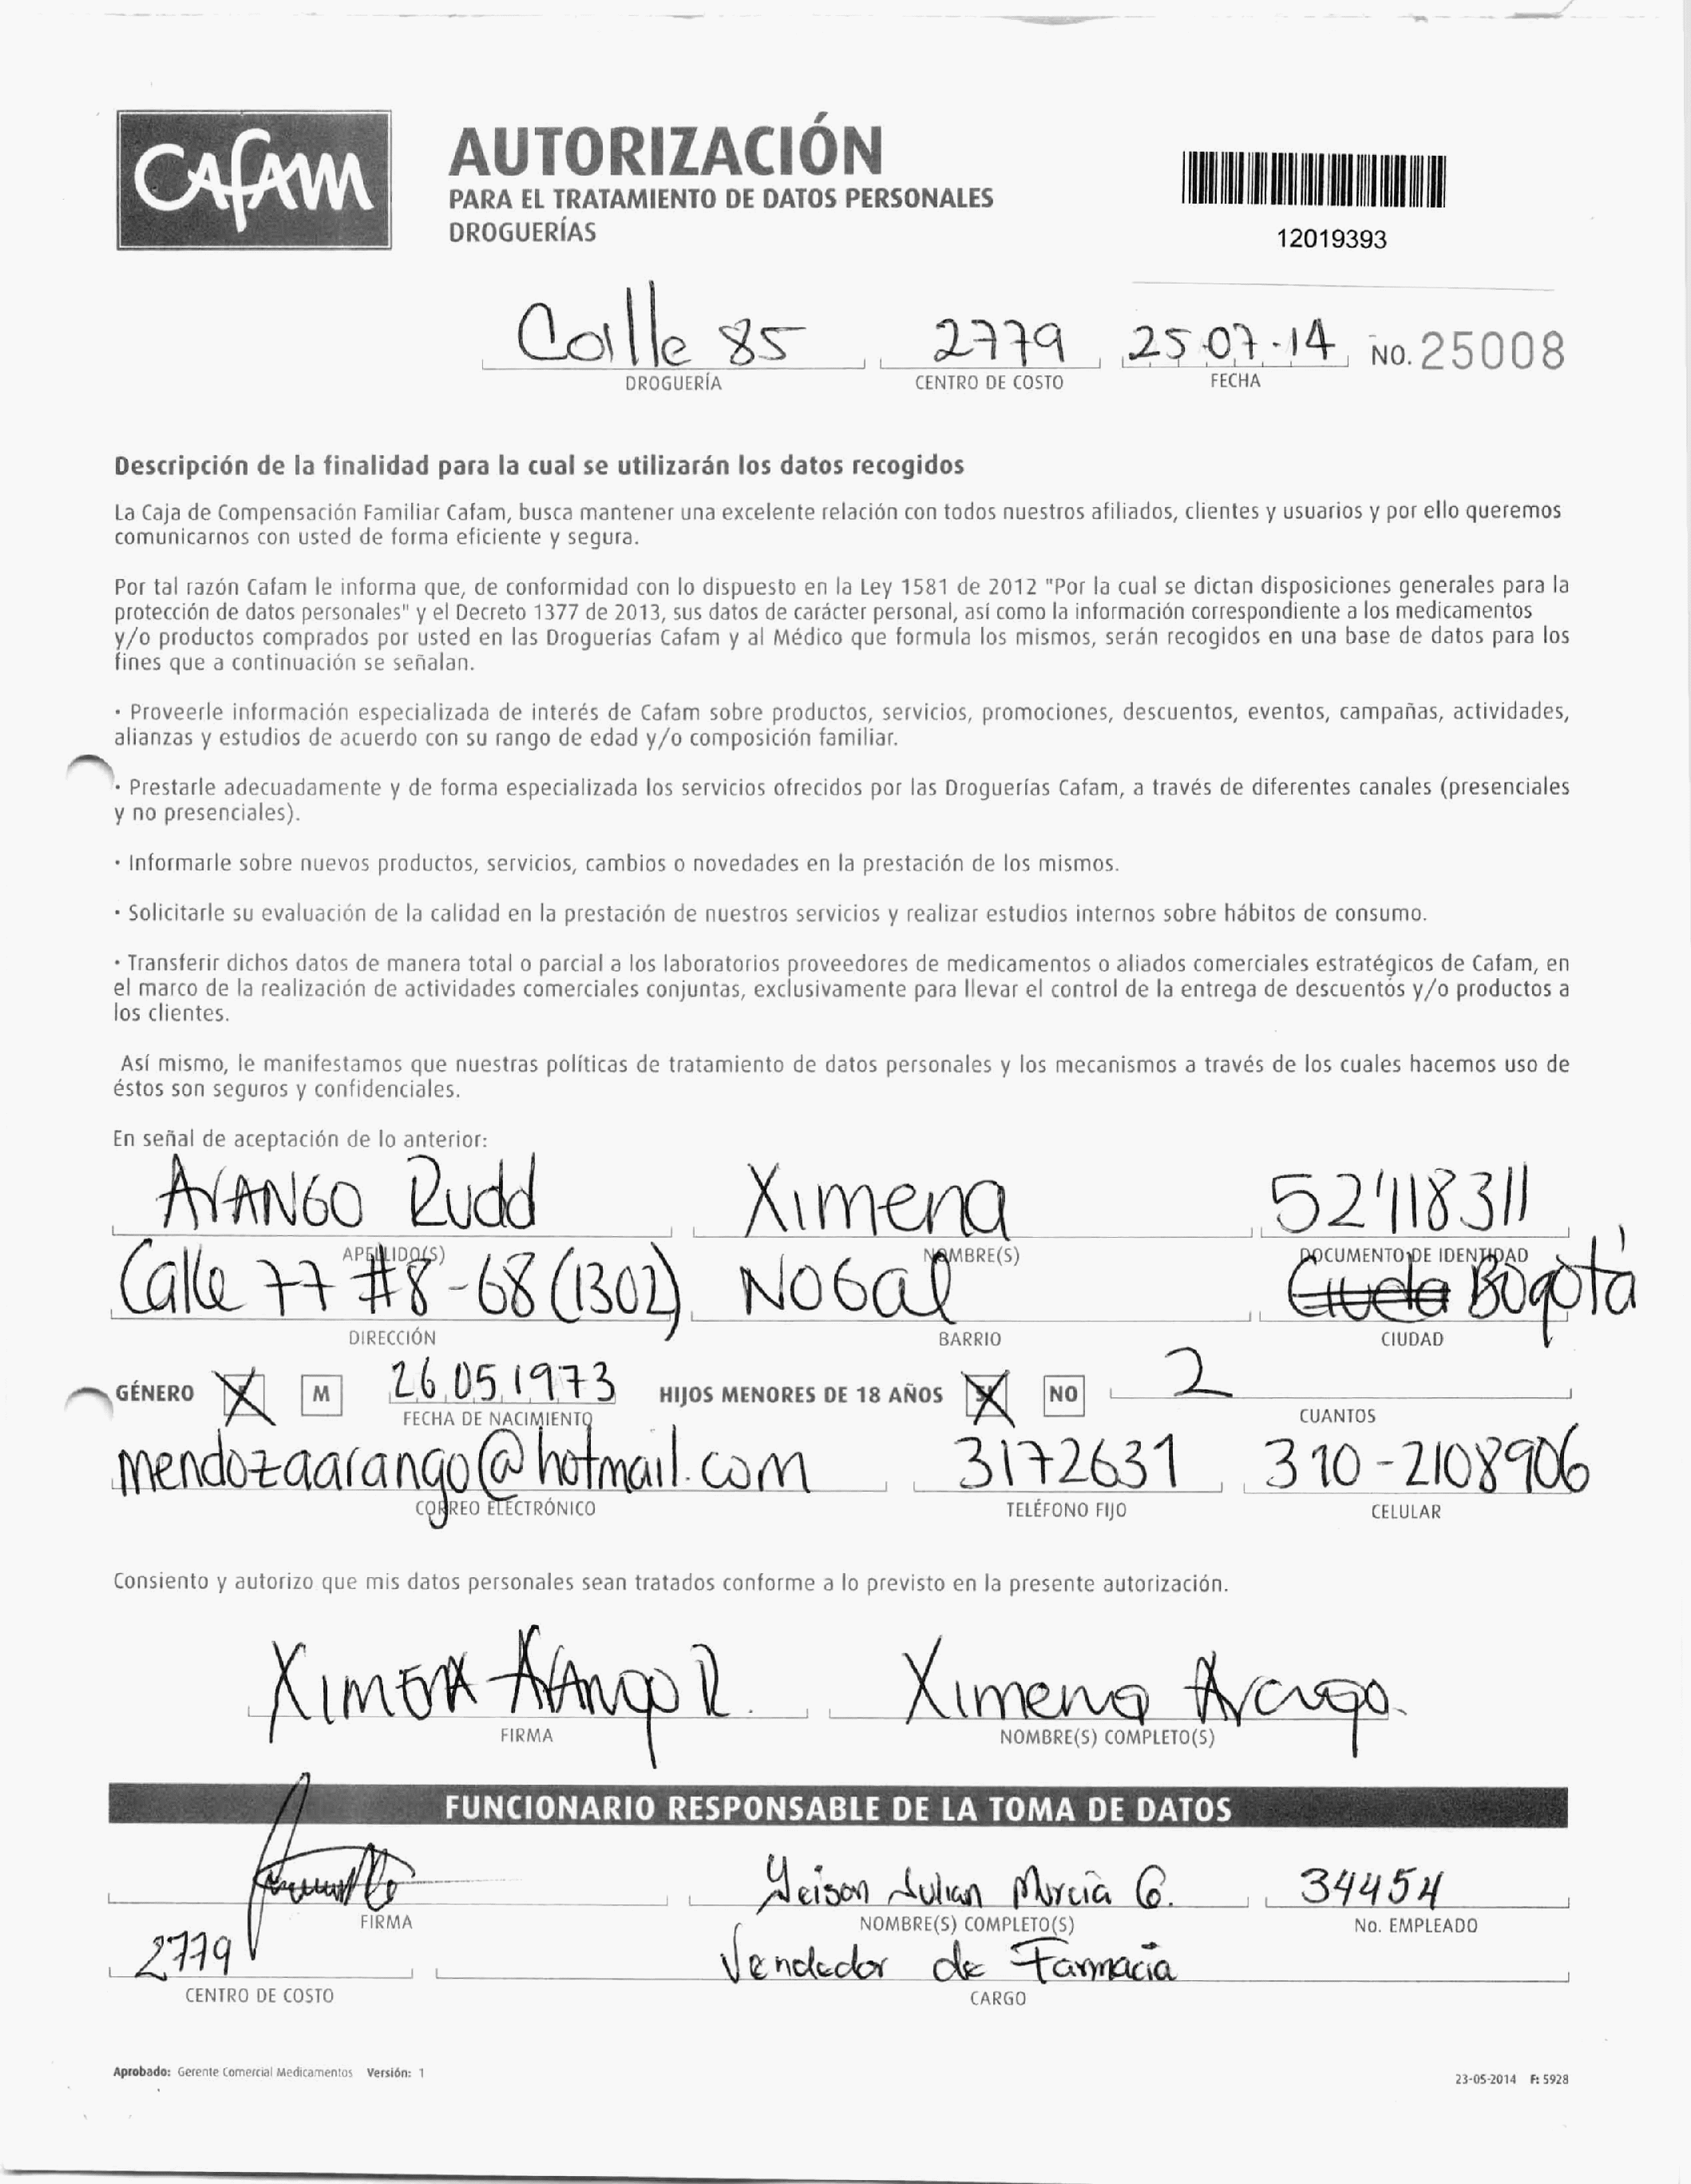 CAFAM
AUTORIZACIÓN
PARA EL TRATAMIENTO DE DATOS PERSONALES
DROGUERÍAS
12019393
Calle 85 2779 25.07.14 No. 25008
DROGUERÍA CENTRO DE COSTO FECHA
Descripción de la finalidad para la cual se utilizarán los datos recogidos
La Caja de Compensación Familiar Cafam, busca mantener una excelente relación con todos nuestros afiliados, clientes y usuarios y por ello queremos
comunicarnos con usted de forma eficiente y segura.
Por tal razón Cafam le informa que, de conformidad con lo dispuesto en la Ley 1581 de 2012 "Por la cual se dictan disposiciones generales para la
protección de datos personales" y el Decreto 1377 de 2013, sus datos de carácter personal, así como la información correspondiente a los medicamentos
y/o productos comprados por usted en las Droguerías Cafam y al Médico que formula los mismos, serán recogidos en una base de datos para los
fines que a continuación se señalan.
· Proveerle información especializada de interés de Cafam sobre productos, servicios, promociones, descuentos, eventos, campañas, actividades,
alianzas y estudios de acuerdo con su rango de edad y/o composición familiar.
· Prestarle adecuadamente y de forma especializada los servicios ofrecidos por las Droguerías Cafam, a través de diferentes canales (presenciales
y no presenciales).
· Informarle sobre nuevos productos, servicios, cambios o novedades en la prestación de los mismos.
· Solicitarle su evaluación de la calidad en la prestación de nuestros servicios y realizar estudios internos sobre hábitos de consumo.
· Transferir dichos datos de manera total o parcial a los laboratorios proveedores de medicamentos o aliados comerciales estratégicos de Cafam, en
el marco de la realización de actividades comerciales conjuntas, exclusivamente para llevar el control de la entrega de descuentos y/o productos a
los clientes.
Así mismo, le manifestamos que nuestras políticas de tratamiento de datos personales y los mecanismos a través de los cuales hacemos uso de
éstos son seguros y confidenciales.
En señal de aceptación de lo anterior:
ArANGO Rudd Ximena 52418311
APELLIDO(S) NOMBRE(S) DOCUMENTO DE IDENTIDAD
Calle 77 #8-68 (1302) NOGal Bogotá
DIRECCIÓN BARRIO CIUDAD
GÉNERO X M 26.05.1973 HIJOS MENORES DE 18 AÑOS X NO 2
FECHA DE NACIMIENTO CUANTOS
mendozaarango@hotmail.com 3172631 310-2108906
CORREO ELECTRÓNICO TELÉFONO FIJO CELULAR
Consiento y autorizo que mis datos personales sean tratados conforme a lo previsto en la presente autorización.
XIMENA ArAngo R. Ximena Arango.
FIRMA NOMBRE(S) COMPLETO(S)
FUNCIONARIO RESPONSABLE DE LA TOMA DE DATOS
Yeison Julian Murcia G. 34454
FIRMA NOMBRE(S) COMPLETO(S) No. EMPLEADO
2779 Vendedor de Farmacia
CENTRO DE COSTO CARGO
Aprobado: Gerente Comercial Medicamentos Versión: 1
23-05-2014 F: 5928